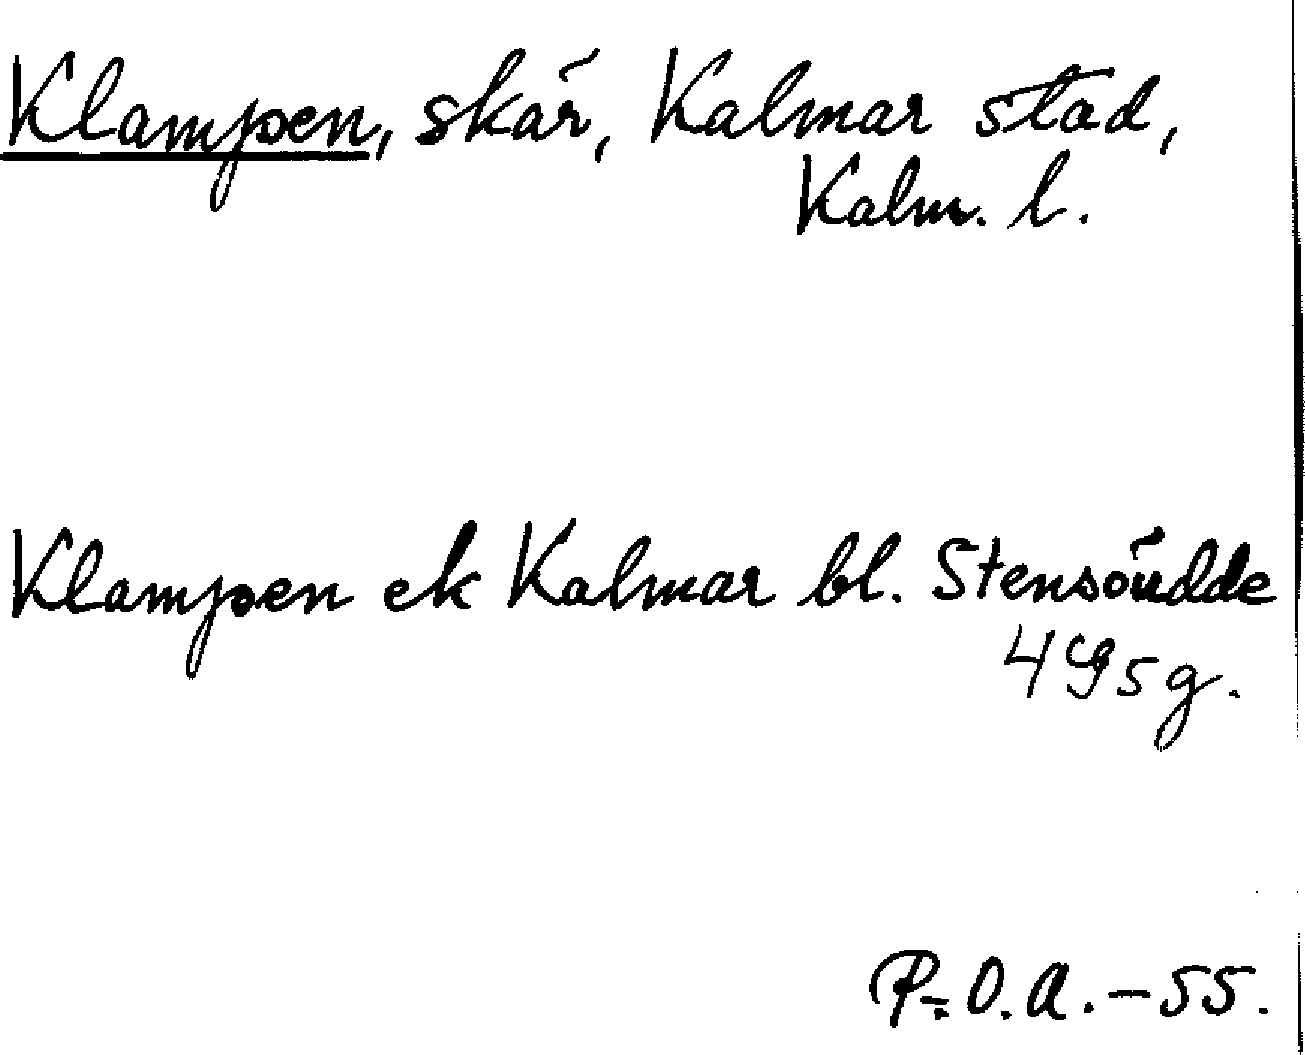 Klampen, skär, Kalmar stad,
Kalm. l.
Klampen ek Kalmar bl. Stensöudde
4 G 5 g.
P.-O.A.-55.